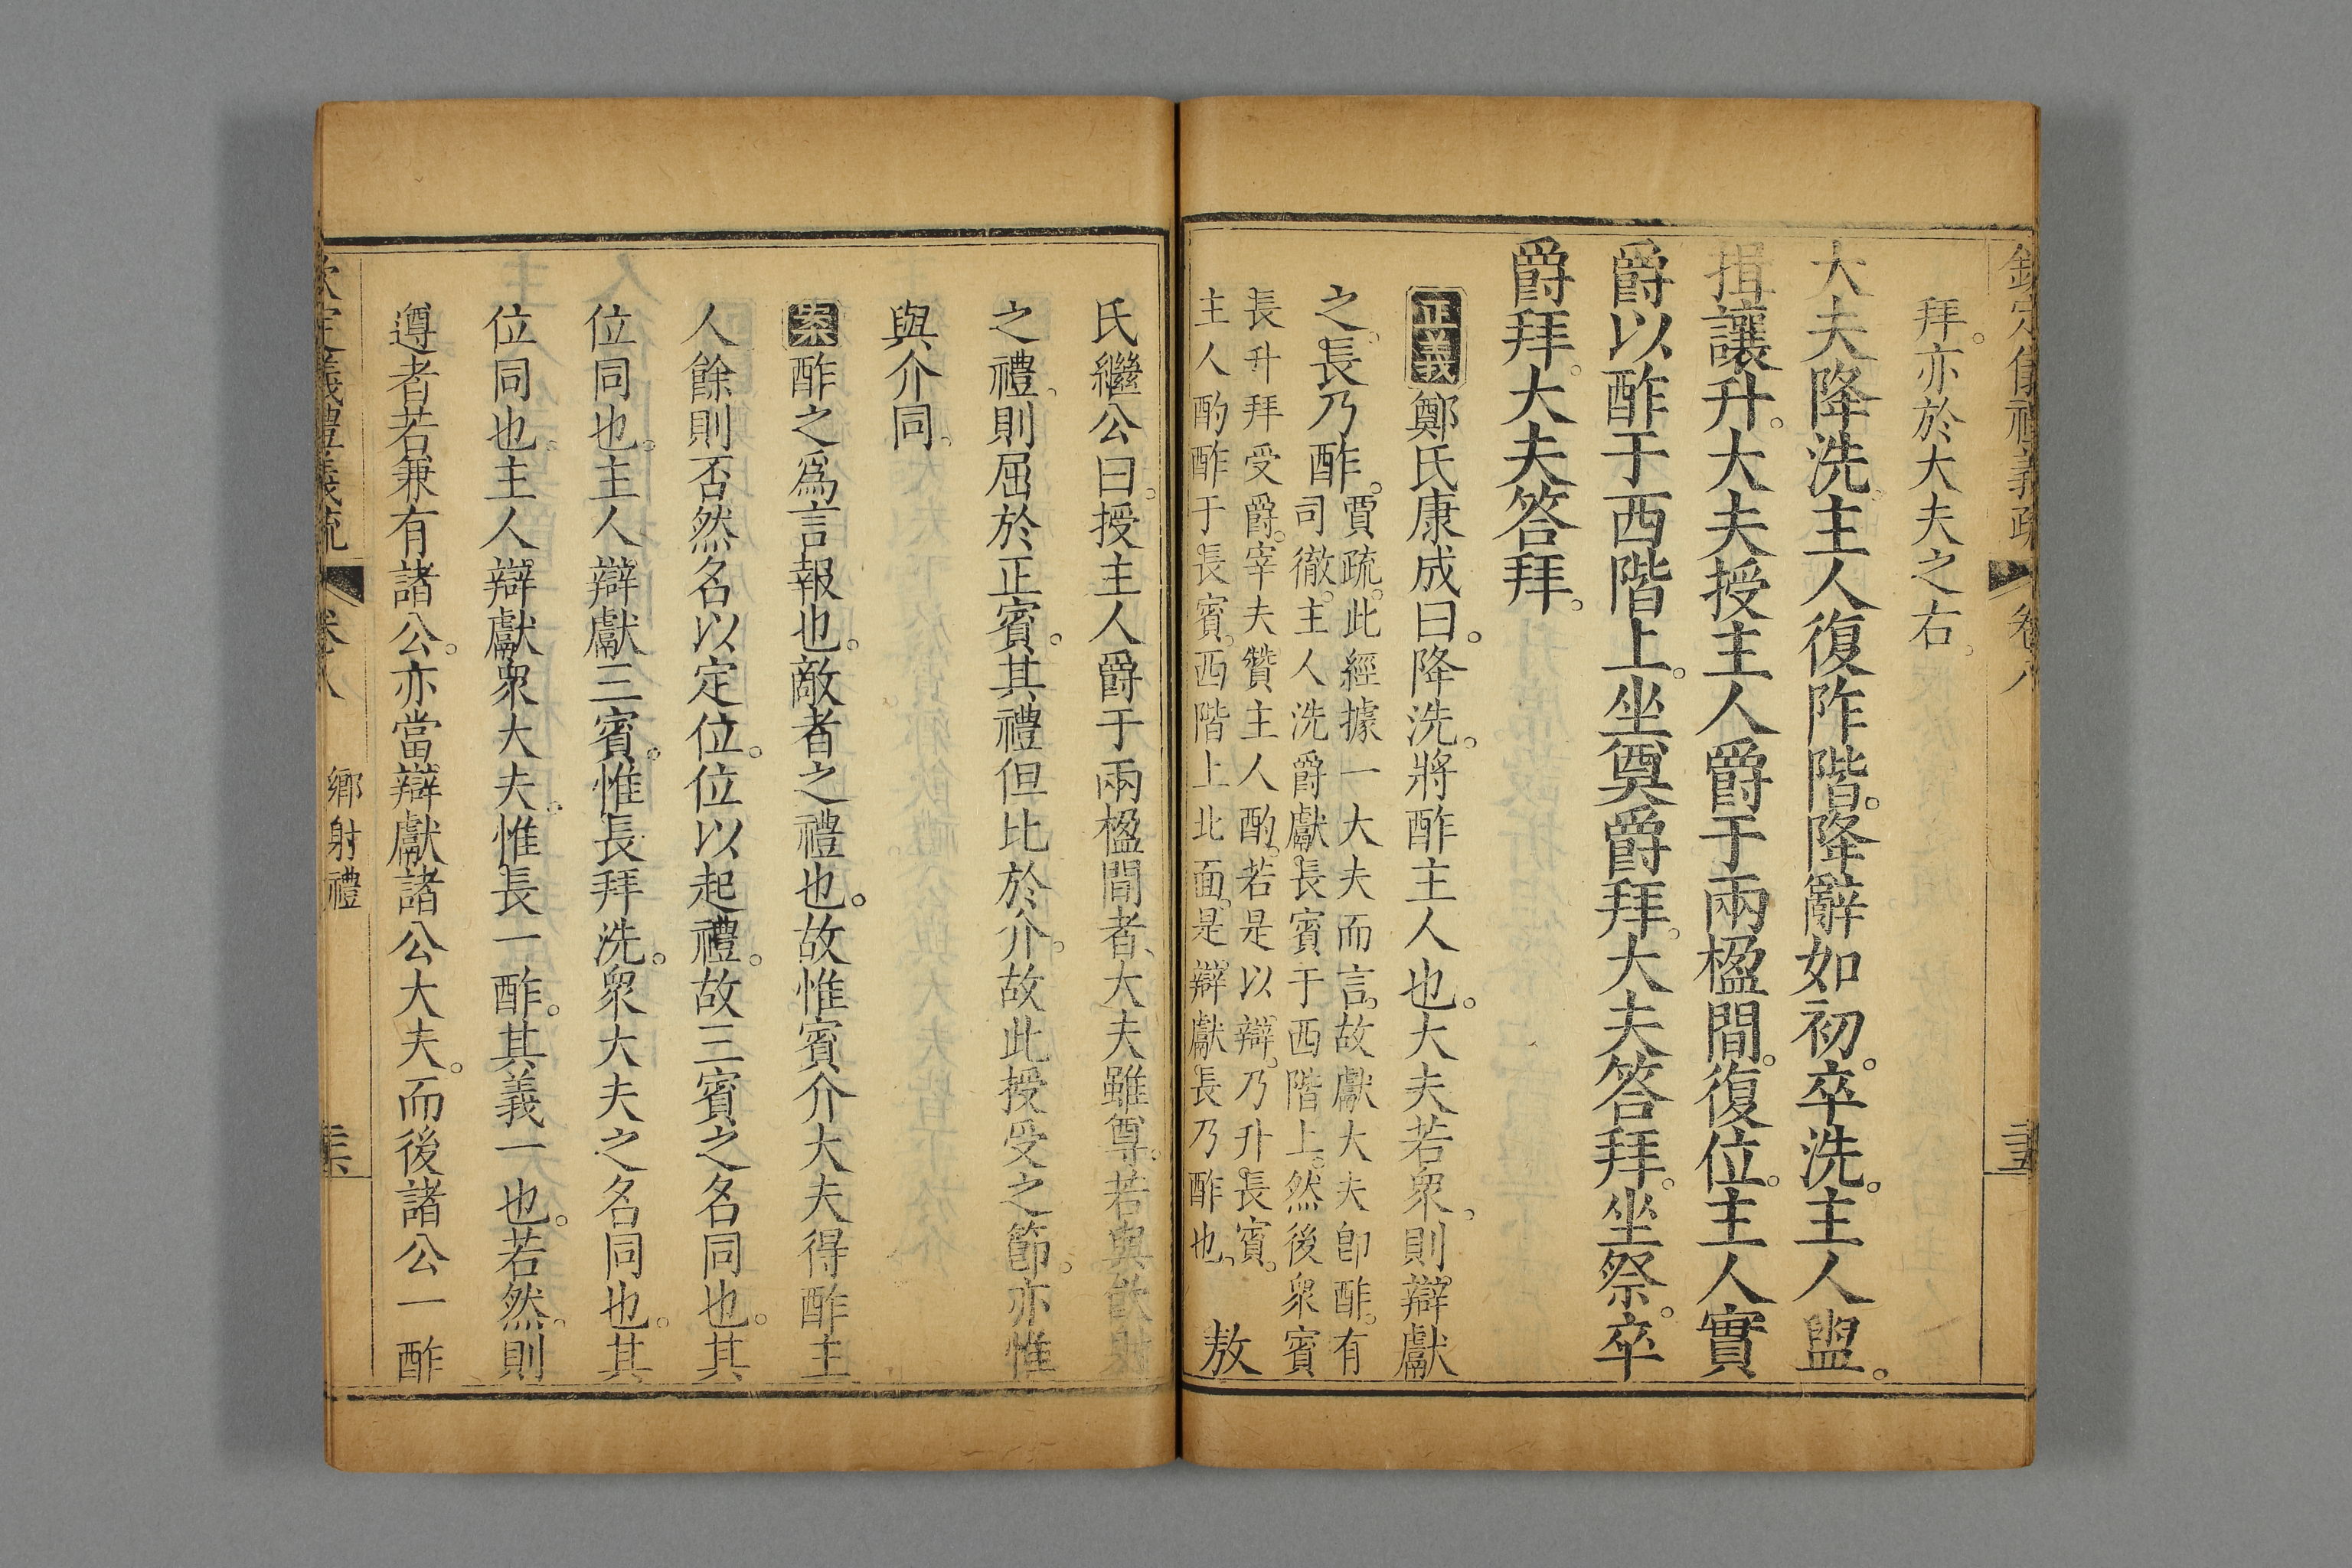 欽定儀禮義疏 卷八
拜。亦於大夫之右。
大夫降洗。主人復阼階。降辭如初。卒洗。主人盥。
揖讓升。大夫授主人爵于兩楹間。復位。主人實
爵以酢于西階上。坐奠爵拜。大夫答拜。坐祭。卒
爵拜。大夫答拜。
正義鄭氏康成曰。降洗。將酢主人也。大夫若衆。則辯獻
之。長乃酢。
賈疏。此經據一大夫而言。故獻大夫卽酢。有
司徹。主人洗爵。獻長賓于西階上。然後衆賓
長升拜受爵。宰夫贊主人酌。若是以辯。乃升長賓。
主人酌酢于長賓。西階上北面。是辯獻長乃酢也。
敖
氏繼公曰。授主人爵于兩楹間者、大夫雖尊。若與飮射
之禮。則屈於正賓。其禮但比於介。故此授受之節。亦惟
與介同。
案酢之爲言報也。敵者之禮也。故惟賓介大夫得酢主
人餘則否然名以定位。位以起禮。故三賓之名同也。其
位同也。主人辯獻三賓。惟長拜洗。衆大夫之名同也。其
位同也。主人辯獻衆大夫。惟長一酢。其義一也。若然。則
遵者若兼有諸公。亦當辯獻諸公大夫。而後諸公一酢
欽定儀禮義疏 卷八 鄉射禮